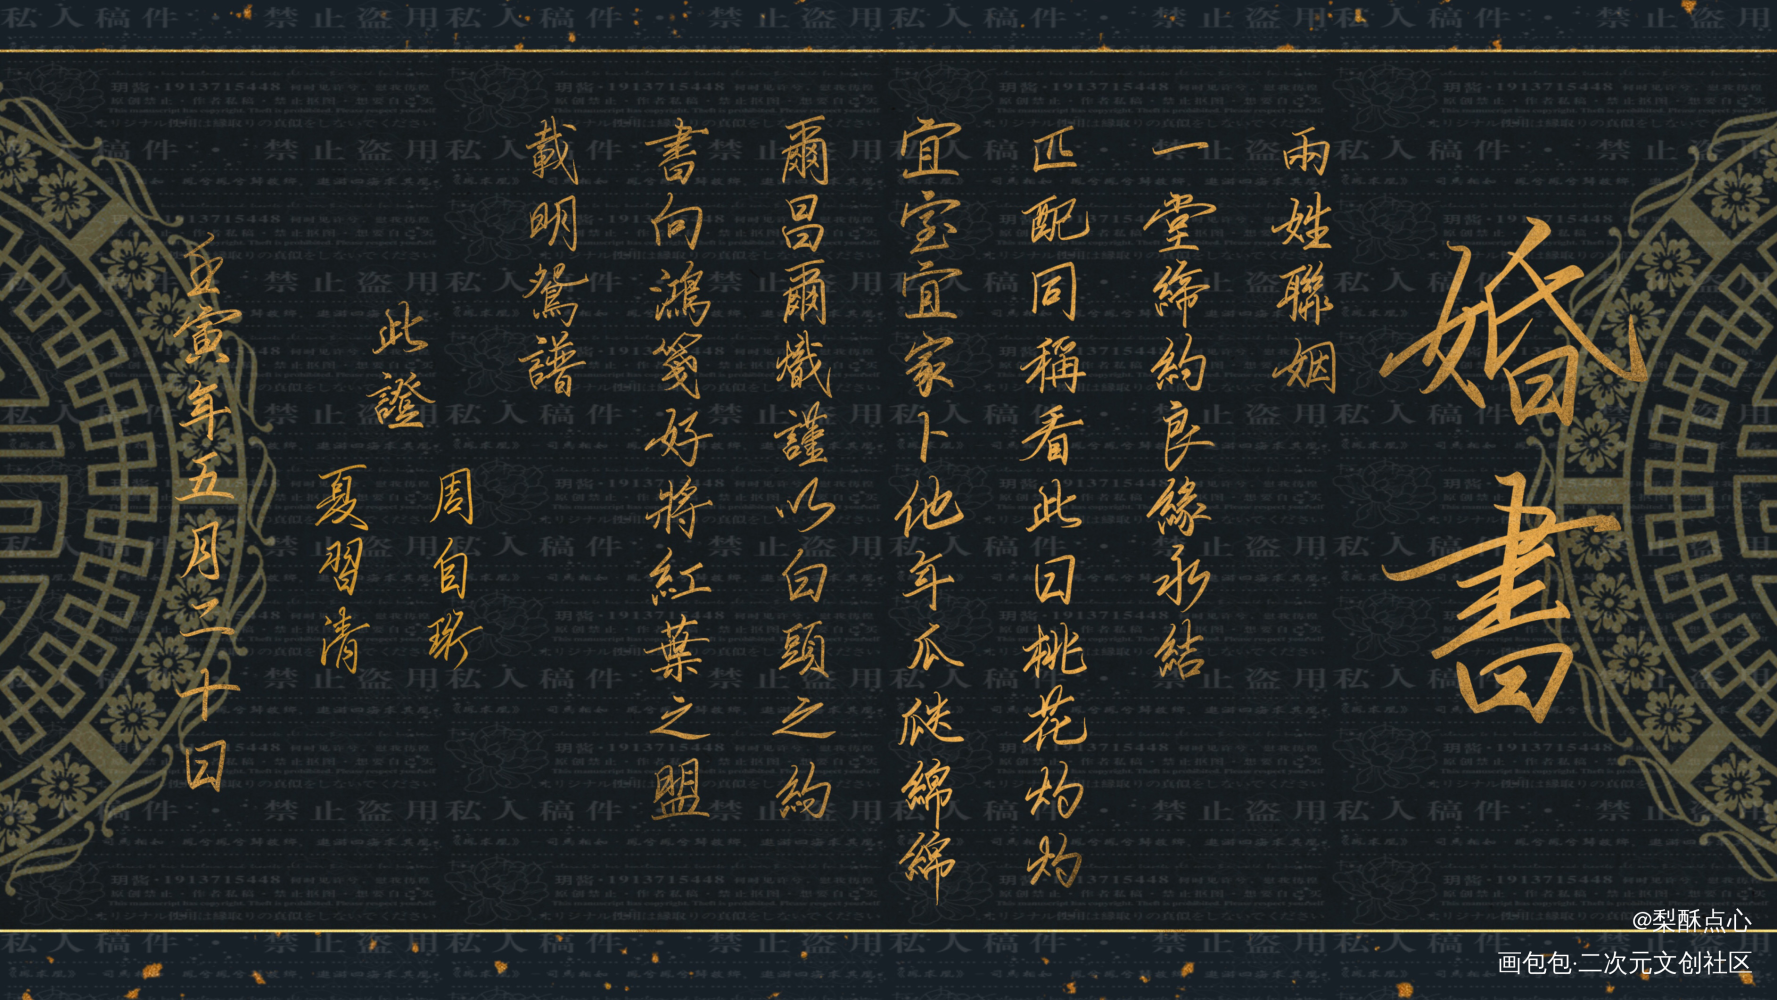 婚書
兩姓聯姻
一堂締約良緣永結
匹配同稱看此日桃花灼灼
宜室宜家卜他年瓜瓞綿綿
爾昌爾熾謹以白頭之約
書向鴻箋好將紅葉之盟
載明鴛譜
此證
周自珩
夏習清
壬寅年五月二十日
@梨酥点心
画包包·二次元文创社区
私人稿件·禁止盗用
玥酱·1913715448